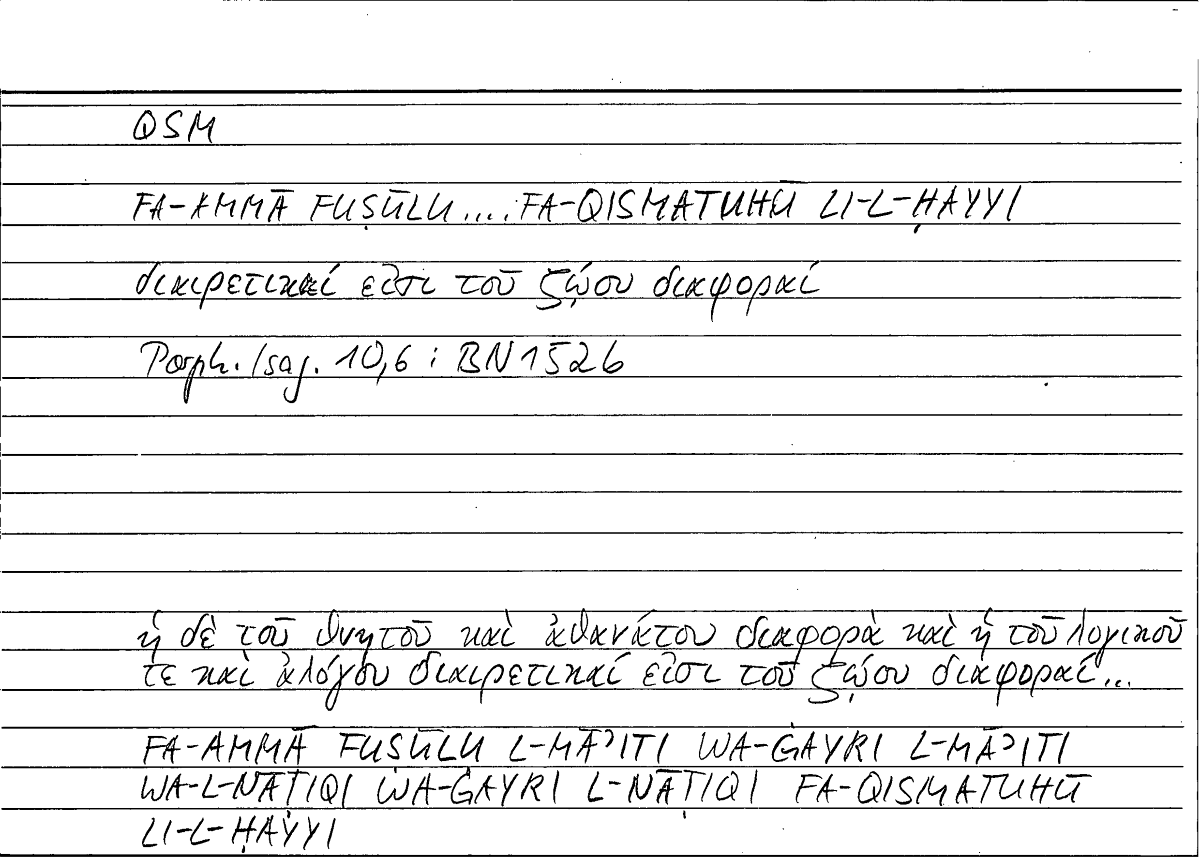 QSM
FA-AMMĀ FUṢŪLU .... FA-QISMATUHŪ LI-L-ḤAYYI
διαιρετικαί εἰσι τοῦ ζῴου διαφοραί
Porph. Isag. 10,6 : BN 1526
ἡ δὲ τοῦ θνητοῦ καὶ ἀθανάτου διαφορὰ καὶ ἡ τοῦ λογικοῦ
τε καὶ ἀλόγου διαιρετικαί εἰσι τοῦ ζῴου διαφοραί...
FA-AMMĀ FUṢŪLU L-MĀʾITI WA-ĠAYRI L-MĀʾITI
WA-L-NĀṬIQI WA-ĠAYRI L-NĀṬIQI FA-QISMATUHŪ
LI-L-ḤAYYI